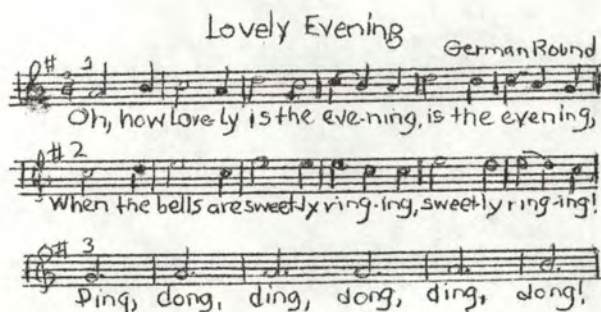 Lovely Evening
German Round
1
Oh, how love-ly is the eve-ning, is the evening,
2
When the bells are sweet-ly ring-ing, sweetly ring-ing!
3
Ding, dong, ding, dong, ding, dong!